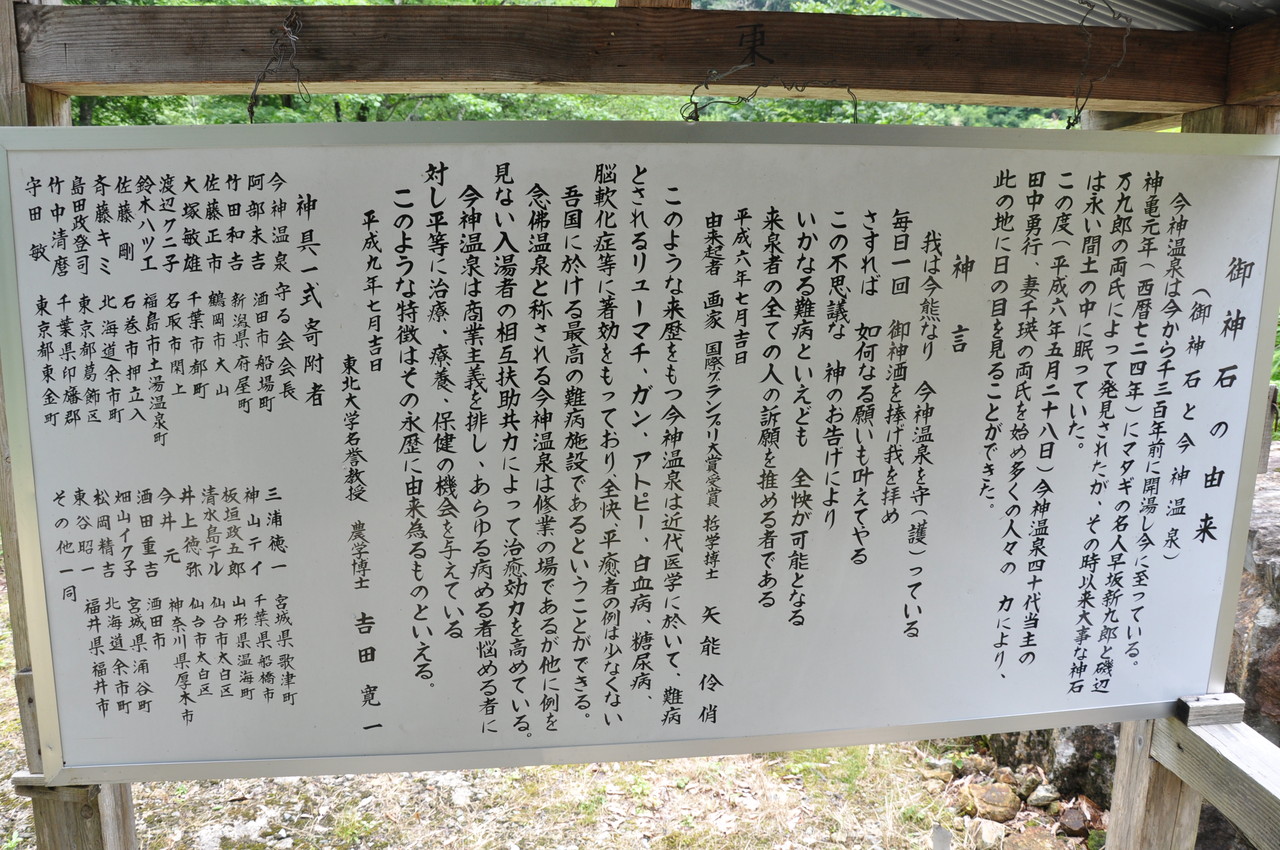 東
御神石の由来
(御神石と今神温泉)
今神温泉は今から千三百年前に開湯し今に至っている。
神亀元年(西暦七二四年)にマタギの名人早坂新九郎と磯辺
万九郎の両氏によって発見されたが、その時以来大事な神石
は永い間土の中に眠っていた。
この度(平成六年五月二十八日)今神温泉四十代当主の
田中勇行、妻千瑛の両氏を始め多くの人々の 力により、
此の地に日の目を見ることができた。
神言
我は今熊なり 今神温泉を守(護)っている
毎日一回 御神酒を捧げ我を拝め
さすれば 如何なる願いも叶えてやる
この不思議な 神のお告げにより
いかなる難病といえども 全快が可能となる
来泉者の全ての人の訴願を推める者である
平成六年七月吉日
由来起者 画家 国際グランプリ大賞受賞 哲学博士 矢能伶俏
このような来歴をもつ今神温泉は近代医学に於いて、難病
とされるリューマチ、ガン、アトピー、白血病、糖尿病、
脳軟化症等に著効をもっており、全快、平癒者の例は少なくない
吾国に於ける最高の難病施設であるということができる。
念佛温泉と称される今神温泉は修業の場であるが他に例を
見ない入湯者の相互扶助共力によって治癒効力を高めている。
今神温泉は商業主義を排し、あらゆる病める者悩める者に
対し平等に治療、療養、保健の機会を与えている
このような特徴はその永歴に由来為るものといえる。
平成九年七月吉日
東北大学名誉教授 農学博士 吉田寛一
神具一式寄附者
今神温泉守る会会長
阿部末吉 酒田市船場町
竹田和吉 新潟県府屋町
佐藤正市 鶴岡市大山
大塚敏雄 千葉市都町
渡辺クニ子 名取市閖上
鈴木ハツエ 福島市土湯温泉町
佐藤剛 石巻市押立入
斉藤キミ 北海道余市町
島田政登司 東京都葛飾区
竹中清麿 千葉県印旛郡
守田敏 東京都東金町
三浦徳一 宮城県歌津町
神山テイ 千葉県船橋市
板垣政五郎 山形県温海町
清水島テル 仙台市太白区
井上徳弥 仙台市太白区
今井元 神奈川県厚木市
酒田重吉 酒田市
畑山イク子 宮城県涌谷町
松岡精吉 北海道余市町
東谷昭一 福井県福井市
その他一同